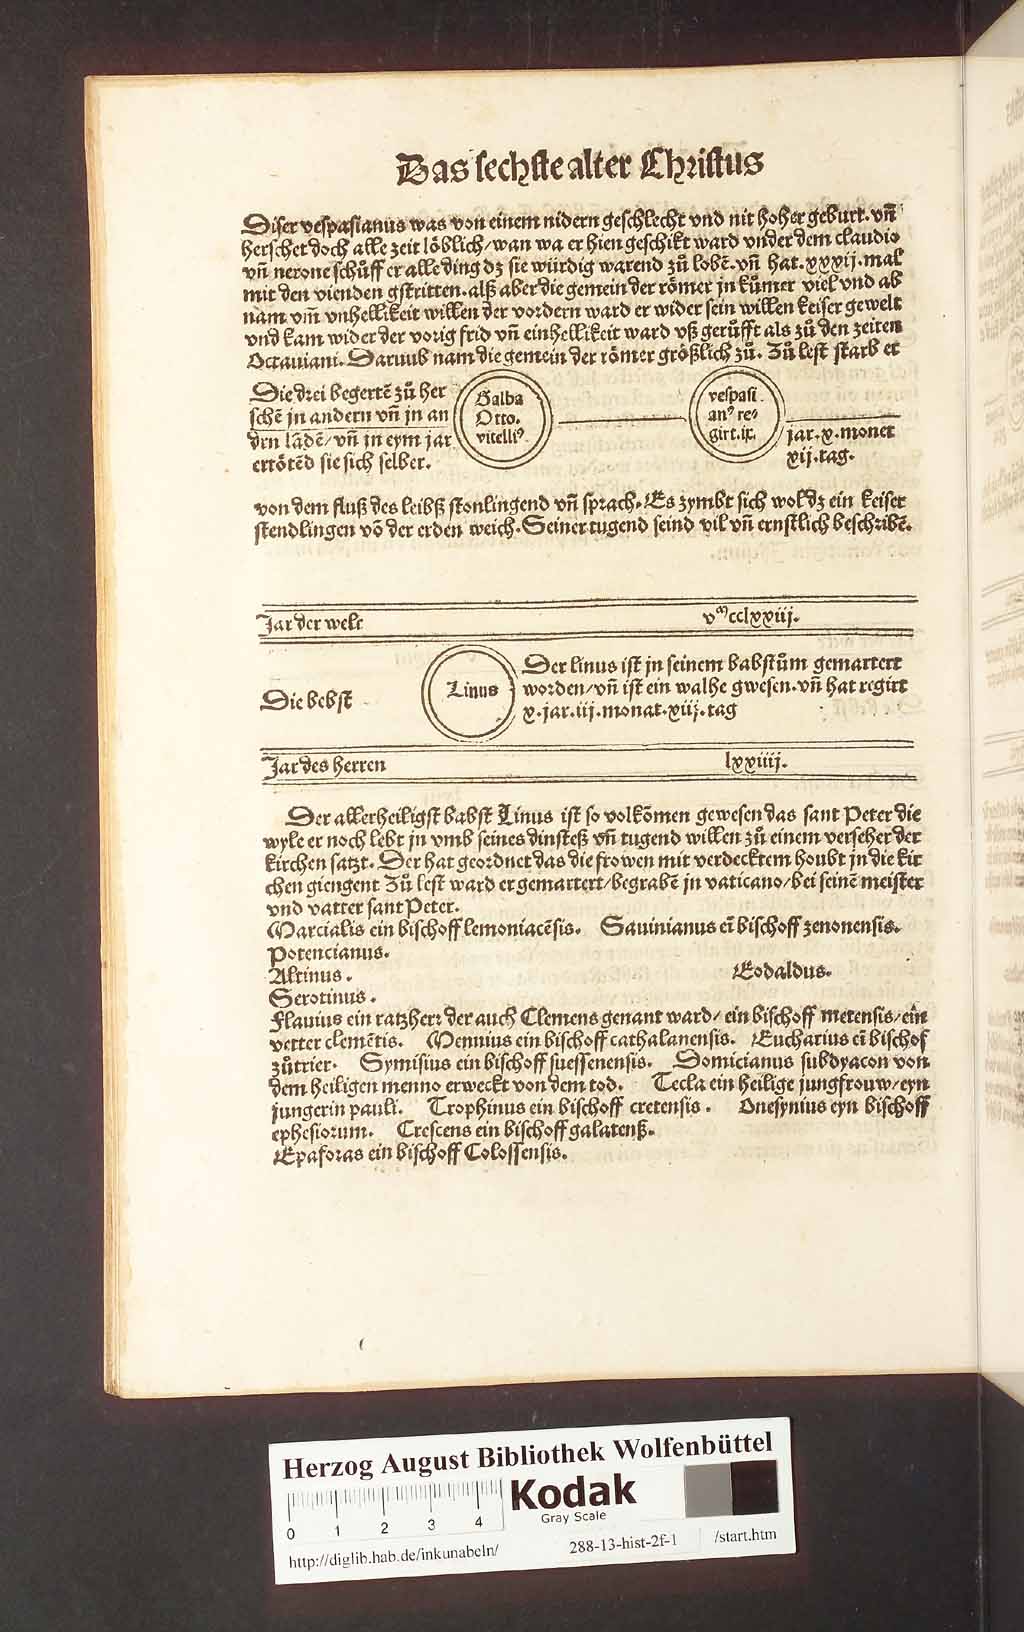 Das sechste alter Christus
Diser vespasianus was von einem nidern geschlecht vnd nit hoher geburt. vn̄
herschet doch alle zeit löblich/wan wa er hien geschikt ward vnder dem claudio
vn̄ nerone schůff er alle ding dz sie würdig warend zů lobē. vn̄ hat. xxxij. mal
mit den vienden gstritten. alß aber die gemein der römer jn kům̄er viel vnd ab
nam vm̄ vnhellikeit willen der vordern ward er wider sein willen keiser gewelt
vnd kam wider der vorig frid vn̄ einhellikeit ward vß gerůfft als zů den zeiten
Octauiani. Daruub nam die gemein der römer größlich zů. Zů lest starb er
Die drei begertē zů her
schē jn andern vn̄ jn an
drn lādē/vn̄ jn eym jar
ertötēd sie sich selber.
Galba
Otto.
vitelliꝰ
vespasi
anꝰ re⸗
girt.ix.
jar.x.monet
xij.tag.
von dem fluß des leibß stonlingend vn̄ sprach. Es zymbt sich wol dz ein keiser
stendlingen vō der erden weich. Seiner tugend seind vil vn̄ ernstlich beschribē.
Jar der welt
vᵐcclxxiij.
Die bebst
Linus
Der linus ist jn seinem babstům gemartert
worden/vn̄ ist ein walhe gwesen. vn̄ hat regirt
x.jar.iij.monat.xiij.tag
Jar des herren
lxxiiij.
Der allerheiligst babst Linus ist so volkōmen gewesen das sant Peter die
wyle er noch lebt jn vmb seines dinsteß vn̄ tugend willen zů einem verseher der
kirchen satzt. Der hat geordnet das die frowen mit verdecktem houbt jn die kir
chen giengent Zů lest ward er gemartert/begrabē jn vaticano/bei seinē meister
vnd vatter sant Peter.
Marcialis ein bischoff lemoniacēsis. Sauinianus eī bischoff zenonensis.
Potencianus.
Altinus. Eodaldus.
Serotinus.
Flauius ein ratzherr der auch Clemens genant ward/ein bischoff metensis/ein
vetter clemētis. Mennius ein bischoff cathalanensis. Eucharius eī bischof
zůtrier. Symisius ein bischoff suessenensis. Domicianus subdyacon von
dem heiligen menno erweckt von dem tod. Tecla ein heilige jungfrouw/eyn
jungerin pauli. Trophinus ein bischoff cretensis. Onesynius eyn bischoff
ephesiorum. Crescens ein bischoff galatenß.
Epaforas ein bischoff Colossensis.
Herzog August Bibliothek Wolfenbüttel
Kodak
Gray Scale
0 1 2 3 4
http://diglib.hab.de/inkunabeln/ 288-13-hist-2f-1 /start.htm